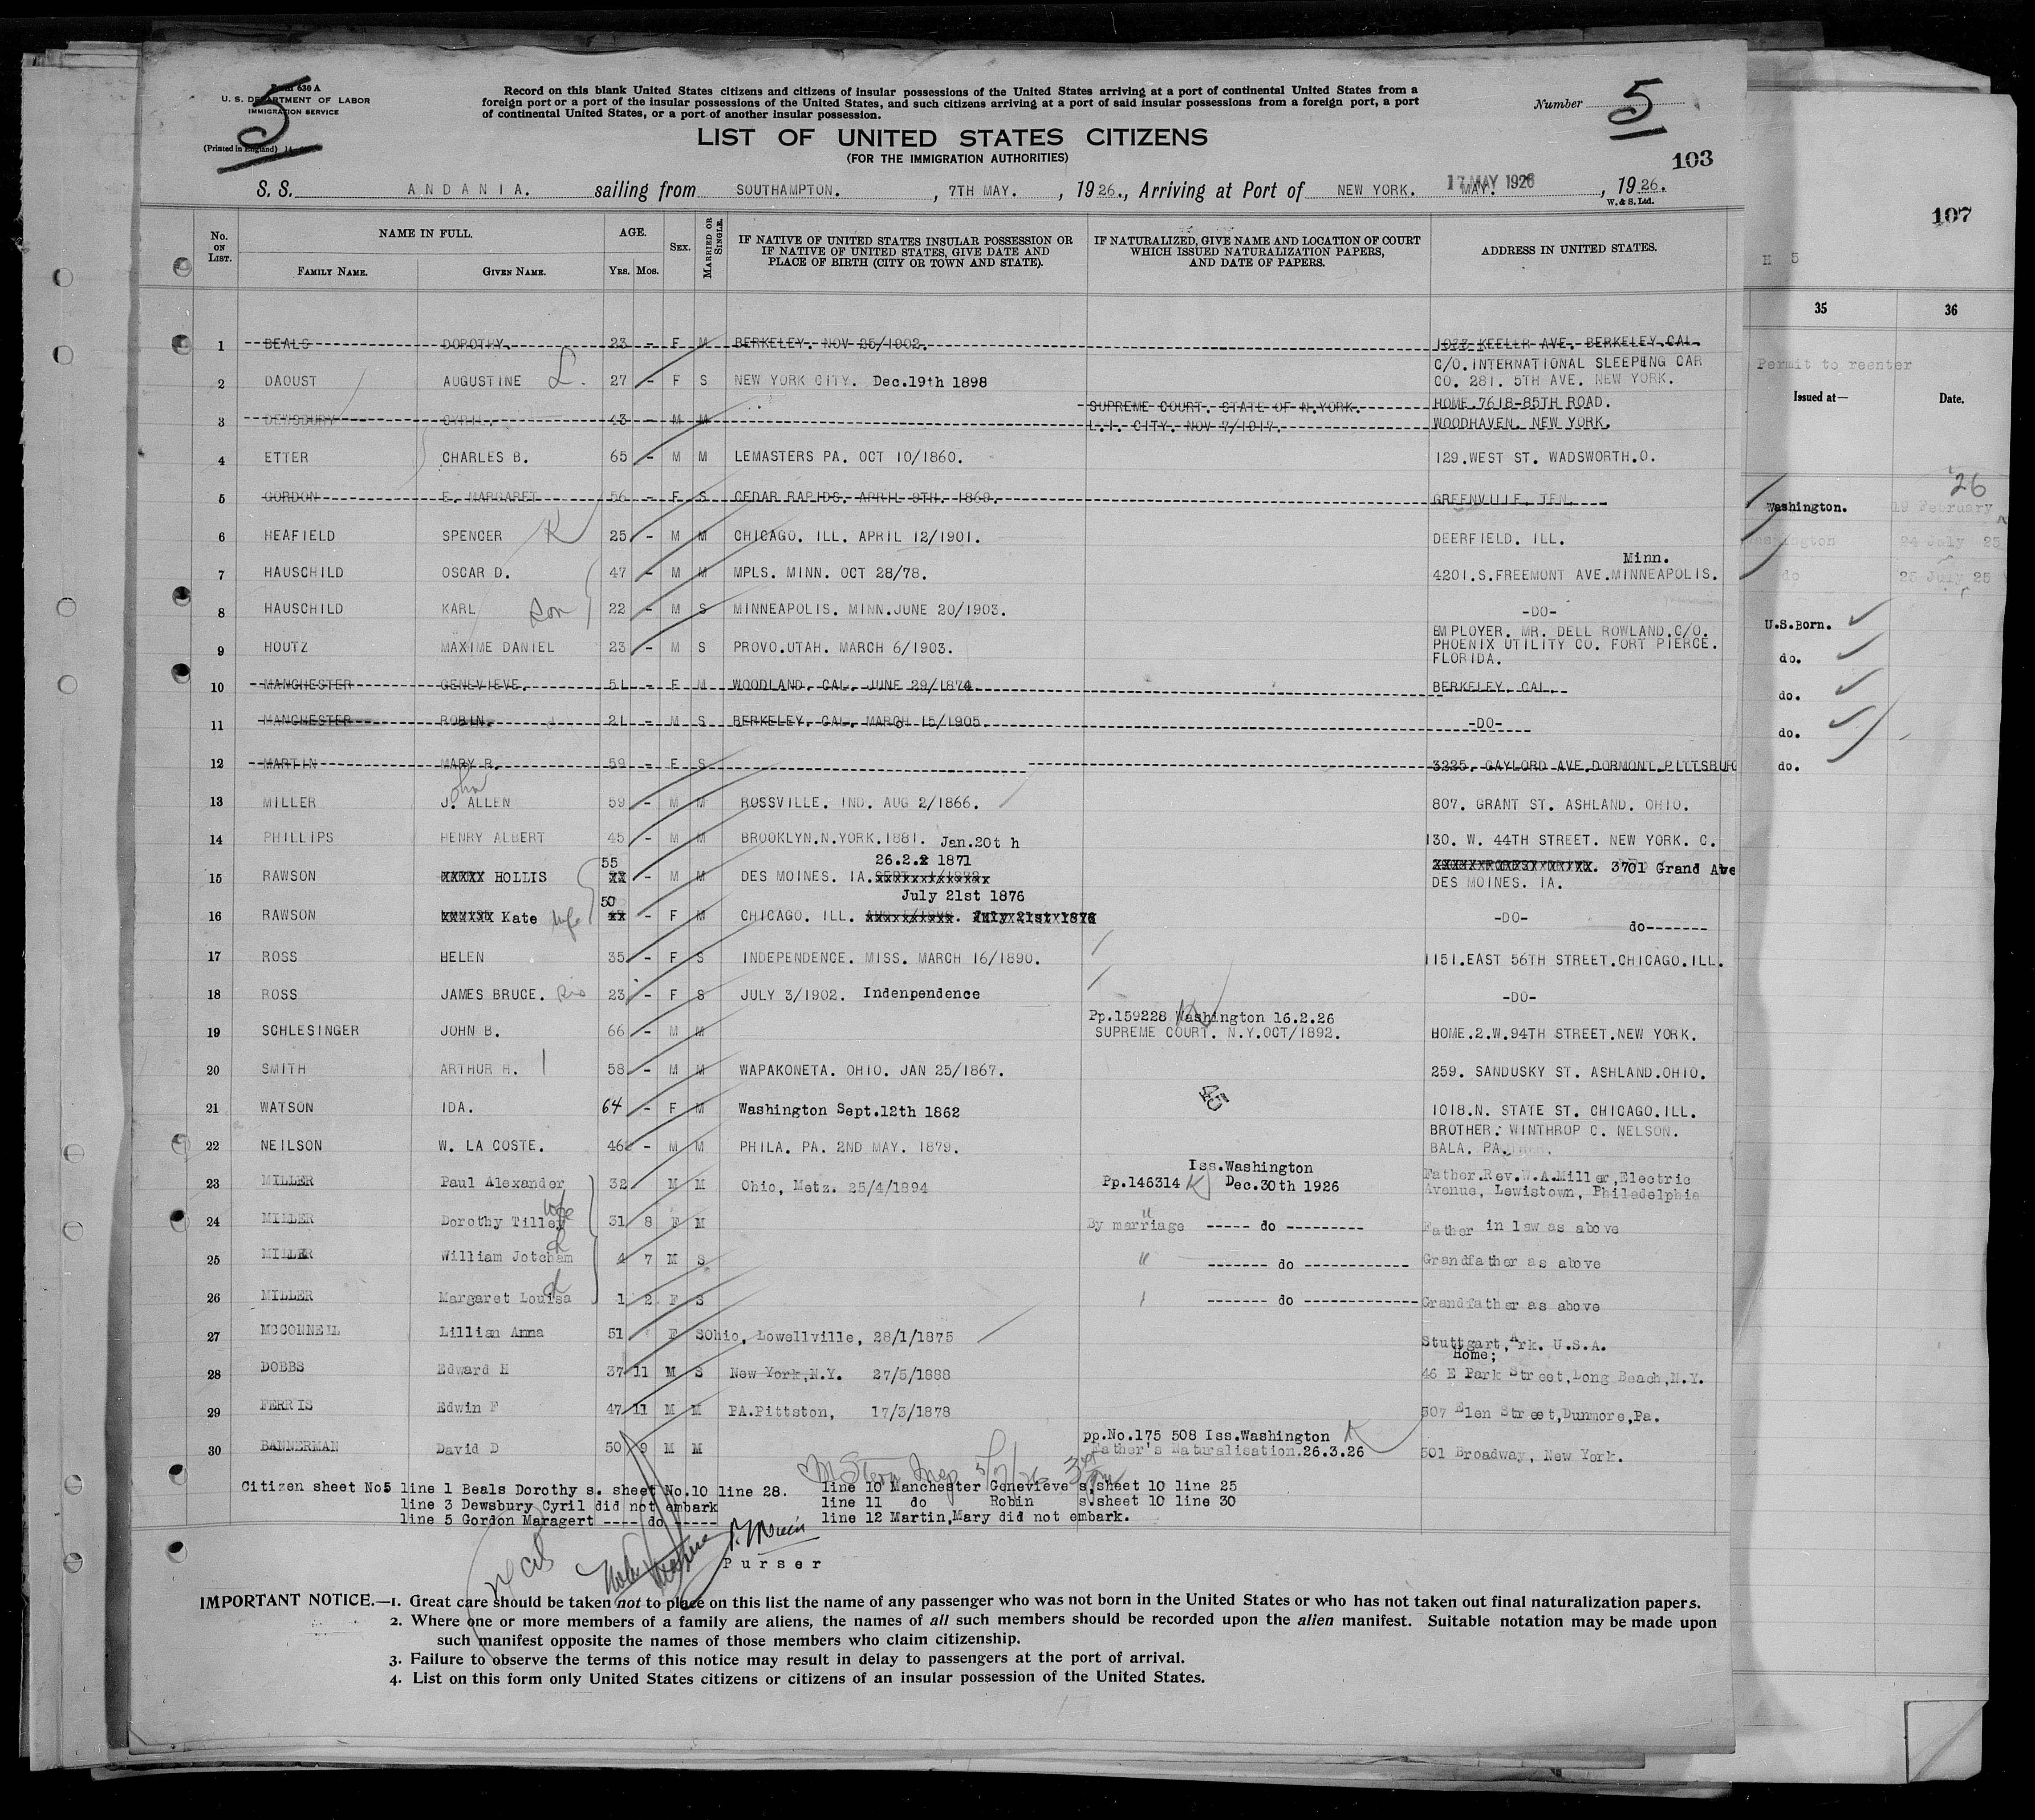 5
Form 630 A
U. S. DEPARTMENT OF LABOR
IMMIGRATION SERVICE
(Printed in England)
Record on this blank United States citizens and citizens of insular possessions of the United States arriving at a port of continental United States from a
foreign port or a port of the insular possessions of the United States, and such citizens arriving at a port of said insular possessions from a foreign port, a port
of continental United States, or a port of another insular possession.
Number 5
LIST OF UNITED STATES CITIZENS
(FOR THE IMMIGRATION AUTHORITIES)
103
S. S. ANDANIA. sailing from SOUTHAMPTON. , 7TH MAY. , 1926., Arriving at Port of NEW YORK. 17 MAY 1926 MAY. , 1926.
W. & S. Ltd.
No. ON LIST. NAME IN FULL. AGE. SEX. MARRIED OR SINGLE. IF NATIVE OF UNITED STATES INSULAR POSSESSION OR IF NATIVE OF UNITED STATES, GIVE DATE AND PLACE OF BIRTH (CITY OR TOWN AND STATE). IF NATURALIZED, GIVE NAME AND LOCATION OF COURT WHICH ISSUED NATURALIZATION PAPERS, AND DATE OF PAPERS. ADDRESS IN UNITED STATES.
FAMILY NAME. GIVEN NAME. YRS. MOS.
1 BEALS DOROTHY. 23 - F M BERKELEY. NOV 25/1902. 1077 KEELER AVE. BERKELEY.CAL.
C/O.INTERNATIONAL SLEEPING CAR
2 DAOUST AUGUSTINE L. 27 - F S NEW YORK CITY. Dec.19th 1898 CO. 281. 5TH AVE. NEW YORK.
SUPREME COURT. STATE OF N.YORK. HOME.7618-85TH ROAD.
3 DEWSBURY CYRIL. 43 - M M L.I. CITY. NOV 7/1917. WOODHAVEN. NEW YORK.
4 ETTER CHARLES B. 65 - M M LEMASTERS PA. OCT 10/1860. 129.WEST ST. WADSWORTH.O.
5 GORDON E. MARGARET 56 - F S CEDAR RAPIDS. APRIL 9TH. 1869. GREENVILLE. TEN.
6 HEAFIELD SPENCER K 25 - M M CHICAGO. ILL. APRIL 12/1901. DEERFIELD. ILL.
Minn.
7 HAUSCHILD OSCAR D. 47 - M M MPLS. MINN. OCT 28/78. 4201.S.FREEMONT AVE.MINNEAPOLIS.
8 HAUSCHILD KARL Son 22 - M S MINNEAPOLIS. MINN.JUNE 20/1903. -DO-
EMPLOYER. MR. DELL ROWLAND.C/O.
9 HOUTZ MAXIME DANIEL 23 - M S PROVO.UTAH. MARCH 6/1903. PHOENIX UTILITY CO. FORT PIERCE.
FLORIDA.
10 MANCHESTER GENEVIEVE. 51 - F M WOODLAND. CAL. JUNE 29/1874. BERKELEY. CAL.
11 MANCHESTER ROBIN. 21 - M S BERKELEY. CAL. MARCH 15/1905. -DO-
12 MARTIN MARY R. 59 - F S 3225. GAYLORD AVE.DORMONT.PITTSBURG
ohn
13 MILLER J. ALLEN 59 - M M ROSSVILLE. IND. AUG 2/1866. 807. GRANT ST. ASHLAND. OHIO.
14 PHILLIPS HENRY ALBERT 45 - M M BROOKLYN.N.YORK.1881. Jan.20t h 130. W. 44TH STREET. NEW YORK. C.
55 26.2.2 1871
15 RAWSON HOLLIS - M M DES MOINES. IA. 3701 Grand Ave
DES MOINES. IA.
50 July 21st 1876
16 RAWSON Kate wife - F M CHICAGO. ILL. July 21st 1876 -DO- do-------
17 ROSS HELEN 35 - F S INDEPENDENCE. MISS. MARCH 16/1890. 1151.EAST 56TH STREET.CHICAGO.ILL.
18 ROSS JAMES BRUCE. 23 - F S JULY 3/1902. Indenpendence -DO-
Pp.159228 Washington 16.2.26
19 SCHLESINGER JOHN B. 66 - M M SUPREME COURT. N.Y.OCT/1892. HOME.2.W.94TH STREET.NEW YORK.
20 SMITH ARTHUR H. 58 - M M WAPAKONETA. OHIO. JAN 25/1867. 259. SANDUSKY ST. ASHLAND.OHIO.
21 WATSON IDA. 64 - F M Washington Sept.12th 1862 1018.N. STATE ST. CHICAGO.ILL.
BROTHER. WINTHROP C. NELSON.
22 NEILSON W. LA COSTE. 46 - M M PHILA. PA. 2ND MAY. 1879. BALA. PA.
Iss.Washington
23 MILLER Paul Alexander 32 M M Ohio, Metz. 25/4/1894 Pp.146314 K Dec.30th 1926 Father.Rev.W.A.Miller,Electric
Avenue, Lewistown, Philadelphia
wife
24 MILLER Dorothy Tilley 31 8 F M By marriage ----- do --------- Father in law as above
25 MILLER William Jotcham 4 7 M S " ------- do ------------ Grandfather as above
26 MILLER Margaret Louisa 1 2 F S ------- do ------------ Grandfather as above
27 MCCONNELL Lillian Anna 51 F S Ohio, Lowellville, 28/1/1875 Stuttgart, Ark. U.S.A.
Home;
28 DOBBS Edward H 37 11 M S New York,N.Y. 27/5/1888 46 E Park Street,Long Beach,N.Y.
29 FERRIS Edwin F 47 11 M M PA.Pittston, 17/3/1878 507 Elen Street,Dunmore,Pa.
pp.No.175 508 Iss.Washington K
30 BANNERMAN David D 50 9 M M Father's Naturalisation.26.3.26 501 Broadway, New York.
Citizen sheet No5 line 1 Beals Dorothy s. sheet No.10 line 28. line 10 Manchester Genevieve s.sheet 10 line 25
line 3 Dewsbury Cyril did not embark line 11 do Robin s.sheet 10 line 30
line 5 Gordon Maragert ---- do ----- line 12 Martin,Mary did not embark.
Purser
IMPORTANT NOTICE.—1. Great care should be taken not to place on this list the name of any passenger who was not born in the United States or who has not taken out final naturalization papers.
2. Where one or more members of a family are aliens, the names of all such members should be recorded upon the alien manifest. Suitable notation may be made upon
such manifest opposite the names of those members who claim citizenship.
3. Failure to observe the terms of this notice may result in delay to passengers at the port of arrival.
4. List on this form only United States citizens or citizens of an insular possession of the United States.
107
H 5
35 36
Permit to reenter
Issued at— Date.
'26
Washington. 19 February
Washington 24 July 25
do 25 July 25
U.S.Born.
do.
do.
do.
do.